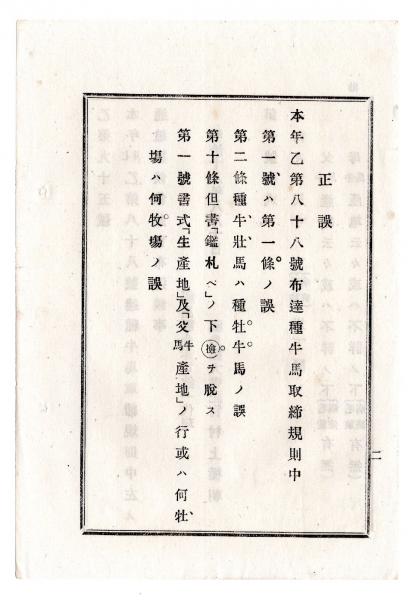 正誤
本年乙第八十八號布達種牛馬取締規則中
第一號ハ第一條ノ誤
第二條種牛壯馬ハ種牡牛馬ノ誤
第十條但書「鑑札ベ」ノ下檢ヲ脫ス
第一號書式「生產地」及「父牛馬產地」ノ行或ハ何牡
塲ハ何牧塲ノ誤
二